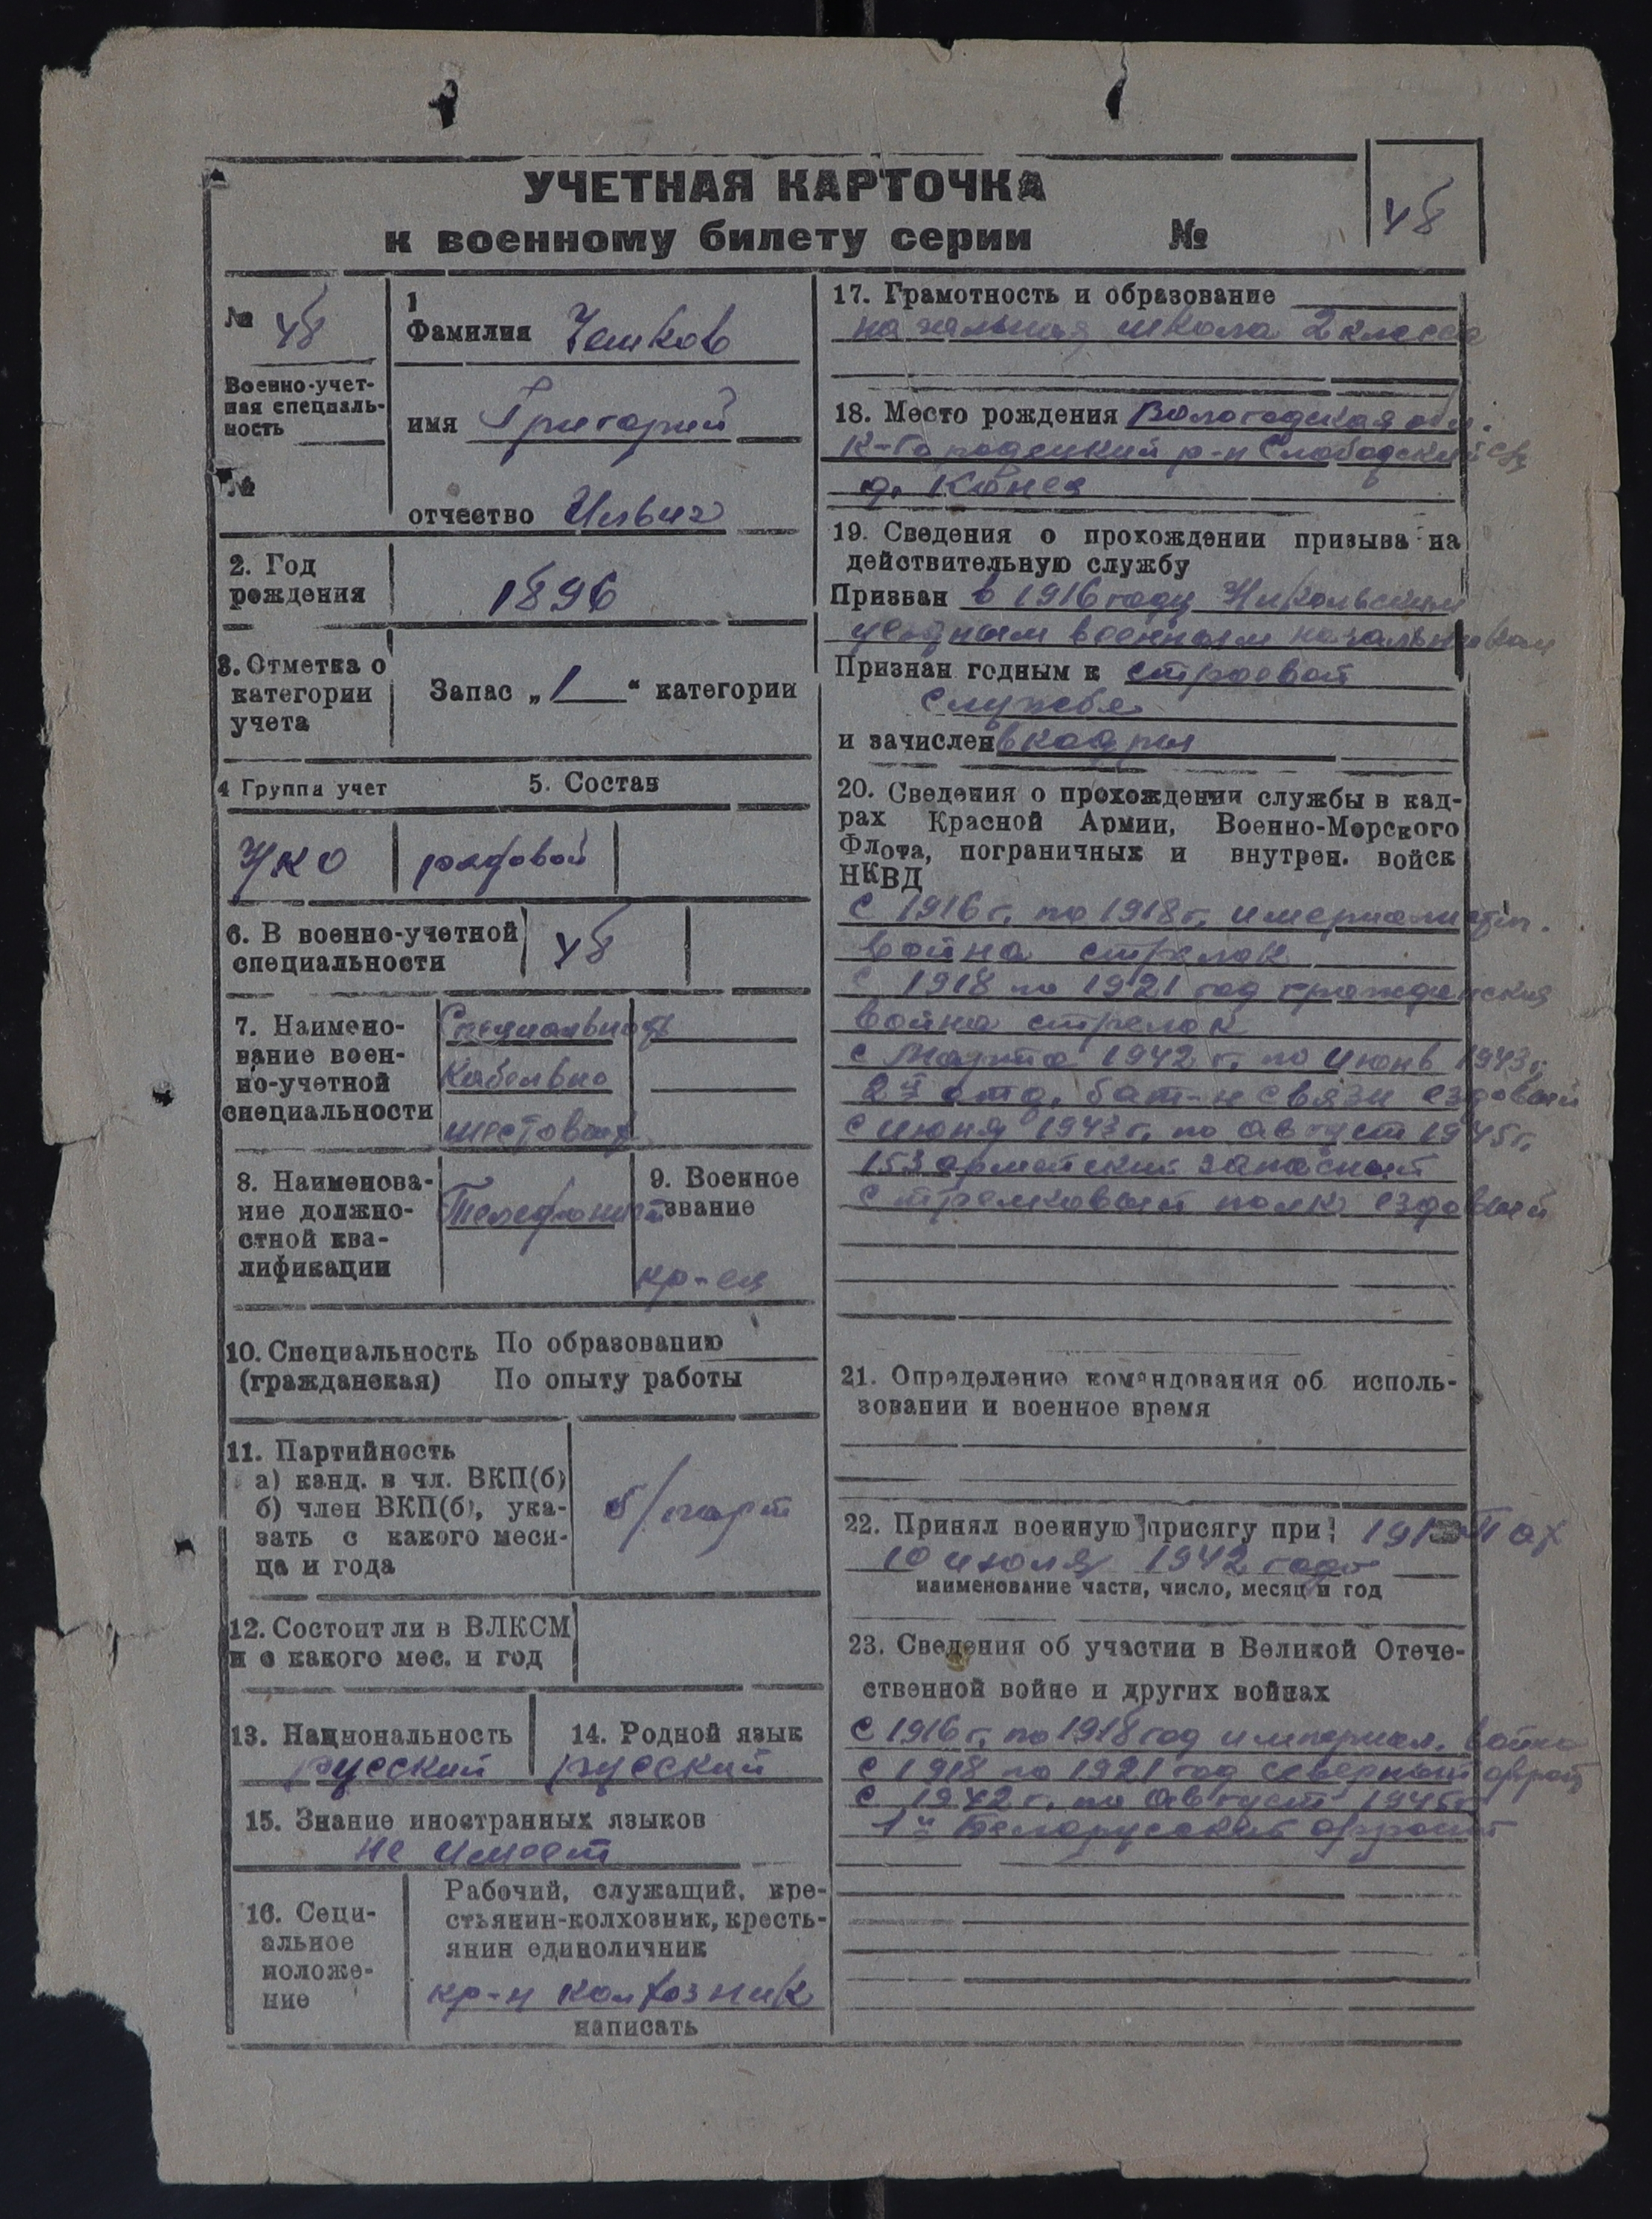 УЧЕТНАЯ КАРТОЧКА
к военному билету серии №
48
№ 48
Военно-учет-
ная специаль-
ность
№
1
Фамилия Чешков
имя Григорий
отчество Ильич
2. Год
рождения
1896
3. Отметка о
категории
учета
Запас „1“ категории
4 Группа учет
5. Состав
НКО
рядовой
6. В военно-учетной
специальности
48
7. Наимено-
вание воен-
но-учетной
специальности
Специальность
Кабельно
шестовая
8. Наименова-
ние должно-
стной ква-
лификации
Телефонист
9. Военное
звание
кр-ец
10. Специальность
(гражданская)
По образованию
По опыту работы
11. Партийность
а) канд. в чл. ВКП(б)
б) член ВКП(б), ука-
зать с какого меся-
ца и года
б/парт
12. Состоит ли в ВЛКСМ
и с какого мес. и год
13. Национальность
русский
14. Родной язык
русский
15. Знание иностранных языков
не имеет
16. Соци-
альное
положе-
ние
Рабочий, служащий, кре-
стьянин-колхозник, кресть-
янин единоличник
кр-н колхозник
написать
17. Грамотность и образование
начальная школа 2 класса
18. Место рождения Вологодская обл.
К-Городецкий р-н Слободский с/с
д. Конец
19. Сведения о прохождении призыва на
действительную службу
Призван в 1916 году Никольским
уездным военным начальником
Признан годным к строевой
службе
и зачислен в кадры
20. Сведения о прохождении службы в кад-
рах Красной Армии, Военно-Морского
Флота, пограничных и внутрен. войск
НКВД
С 1916 г. по 1918 г. империалистич.
война стрелок
С 1918 по 1921 год гражданская
война стрелок
с Марта 1942 г. по июнь 1943 г.
2й отд. бат-н связи ездовый
с июня 1943 г. по август 1945 г.
153 армейский запасный
стрелковый полк ездовый
21. Определение командования об исполь-
зовании и военное время
22. Принял военную присягу при:
10 июля 1942 года
наименование части, число, месяц и год
23. Сведения об участии в Великой Отече-
ственной войне и других войнах
С 1916 г. по 1918 год империал. война
С 1918 по 1921 год северный фронт
С 1942 г. по август 1945 г.
1й Белорусский фронт